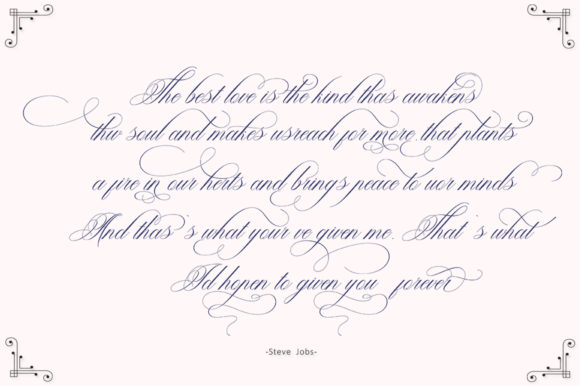 The best love is the kind thas awakens
thw soul and makes usreach for more.that plants
a fire in our herts and brings peace to uor minds
And thas 's what your ve given me. That 's what
I'd hopen to given you forever
-Steve Jobs-